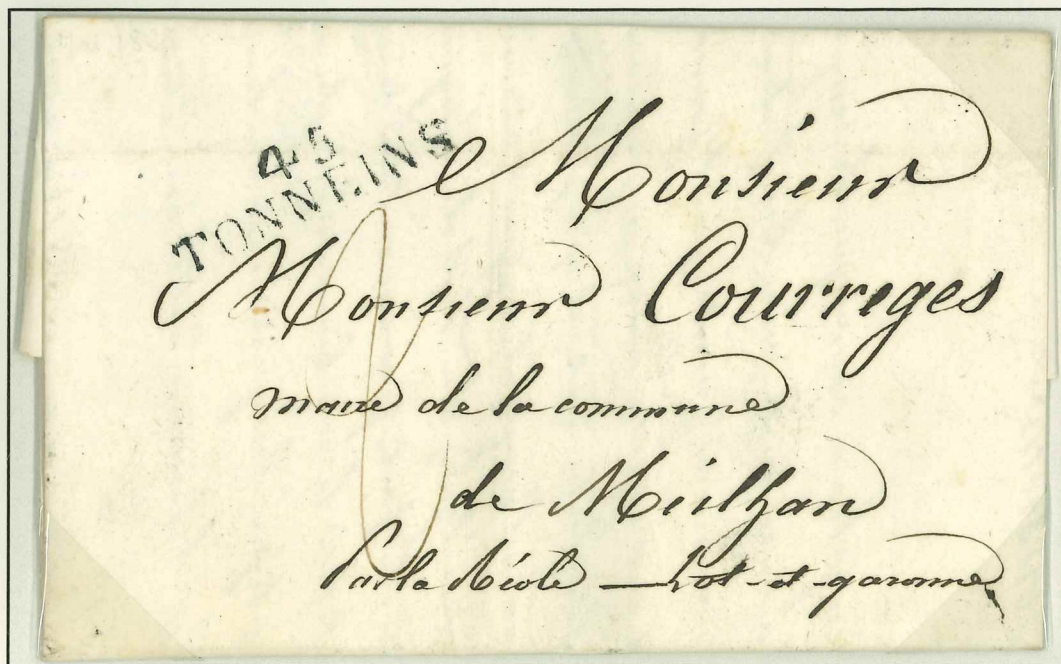 45
TONNEINS
Monsieur
Monsieur Courreges
maire de la commune
de Meilhan
Par la Réole – Lot-et-garonne